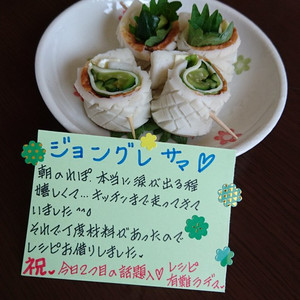 ジョングレ サマ♡
朝のれぽ、本当に涙が出る程
嬉しくて…キッチンまで走ってきて
いました^^♡
それで丁度材料があったので
レシピお借りしました。
祝。今日2つ目の話題入♡レシピ
有難うデス。